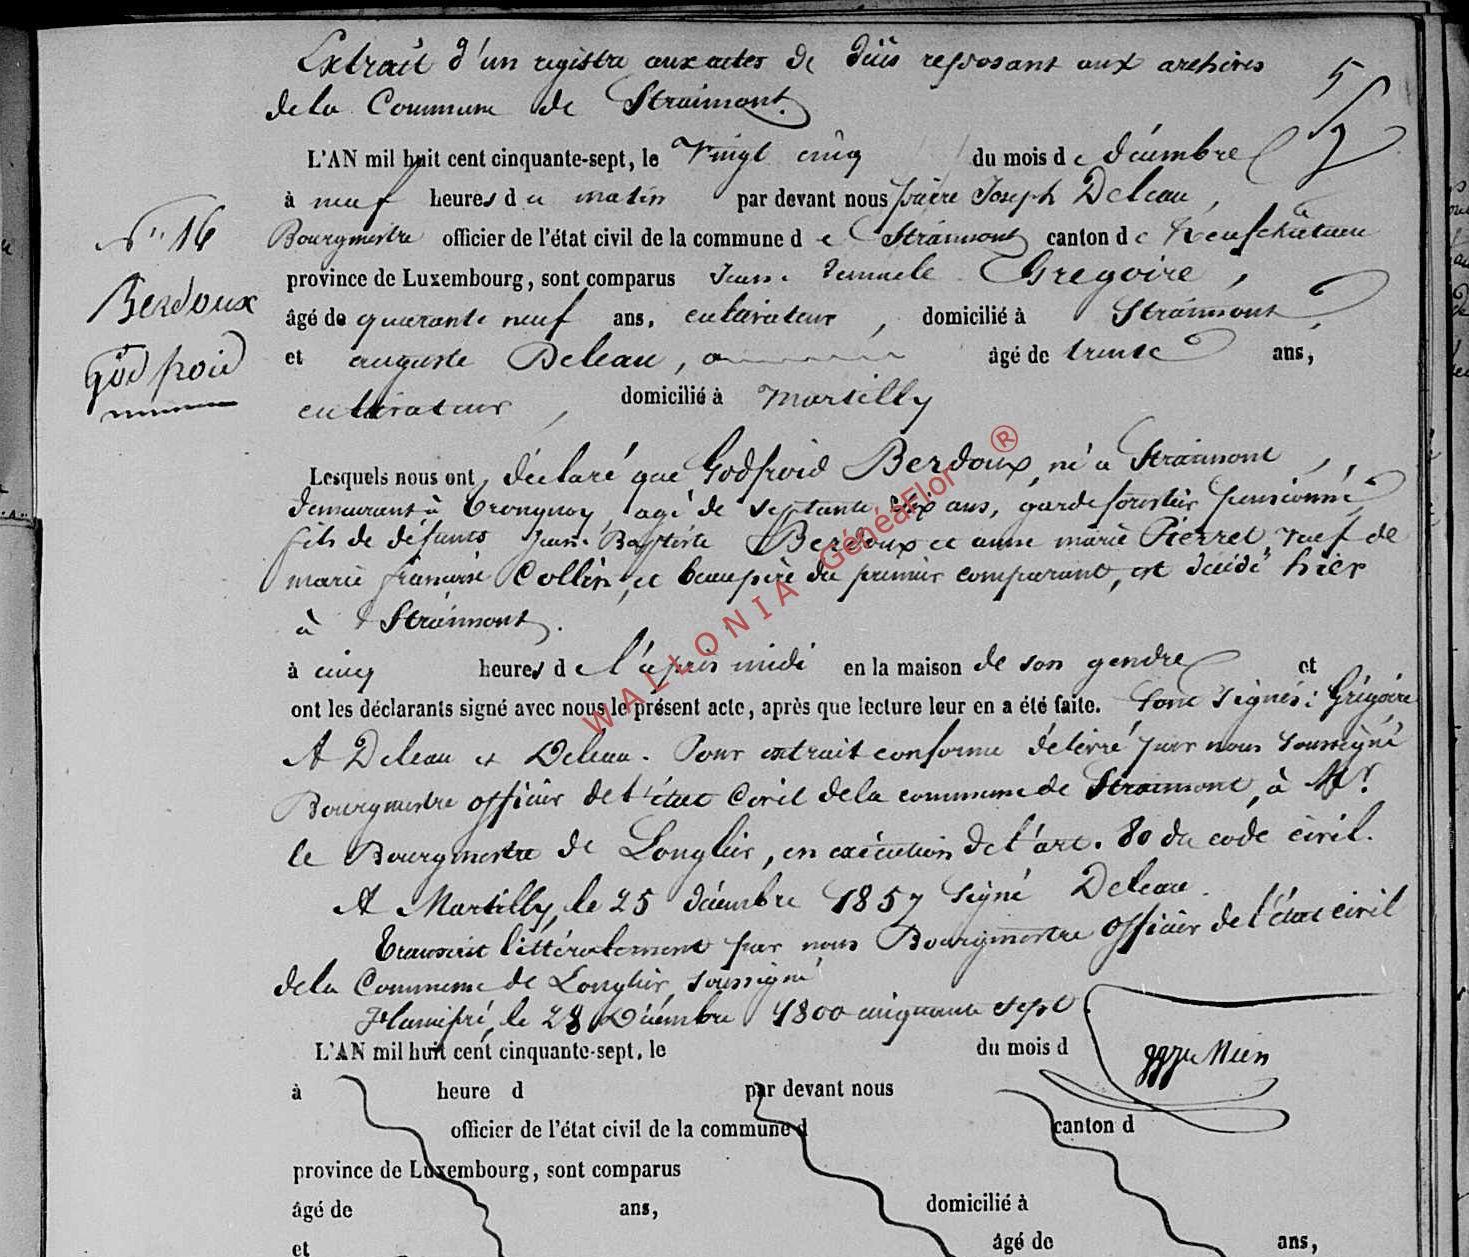 Extrait d'un registre aux actes de décès reposant aux archives
de la Commune de Straimont.
5
L'AN mil huit cent cinquante-sept, le Vingt cinq du mois de décembre
à neuf heures du matin par devant nous pierre Joseph Deleau,
Bourgmestre officier de l'état civil de la commune de Straimont canton de Neufchâteau
province de Luxembourg, sont comparus Jean Grégoire,
âgé de quarante neuf ans, cultivateur, domicilié à Straimont,
et auguste Deleau, âgé de trente ans,
cultivateur, domicilié à Martilly
N° 16
Berdoux
Godfroid
Lesquels nous ont déclaré que Godfroid Berdoux, né à Straimont,
demeurant à Tronquoy, agé de septante six ans, garde forestier pensionné
fils de défunts Jean Baptiste Berdoux et anne marie Pierret veuf de
marie françoise Collin, et beaupère du premier comparant, est décédé hier
à Straimont.
à cinq heures de l'après midi en la maison de son gendre et
ont les déclarants signé avec nous le présent acte, après que lecture leur en a été faite. Sont signés: Grégoire
A Deleau et Deleau. Pour extrait conforme délivré par nous soussigné
Bourgmestre officier de l'état Civil de la commune de Straimont, à Mr
le Bourgmestre de Longlier, en exécution de l'art. 80 du code civil.
A Martilly, le 25 décembre 1857 signé Deleau.
Transcrit littéralement par nous Bourgmestre officier de l'état civil
de la Commune de Longlier, soussigné
Hamipré, le 28 Décembre 1800 cinquante sept.
L'AN mil huit cent cinquante-sept, le du mois d
à heure d par devant nous
officier de l'état civil de la commune d canton d
province de Luxembourg, sont comparus
âgé de ans, domicilié à
et âgé de ans,
WALLONIA GénéaFlor ®